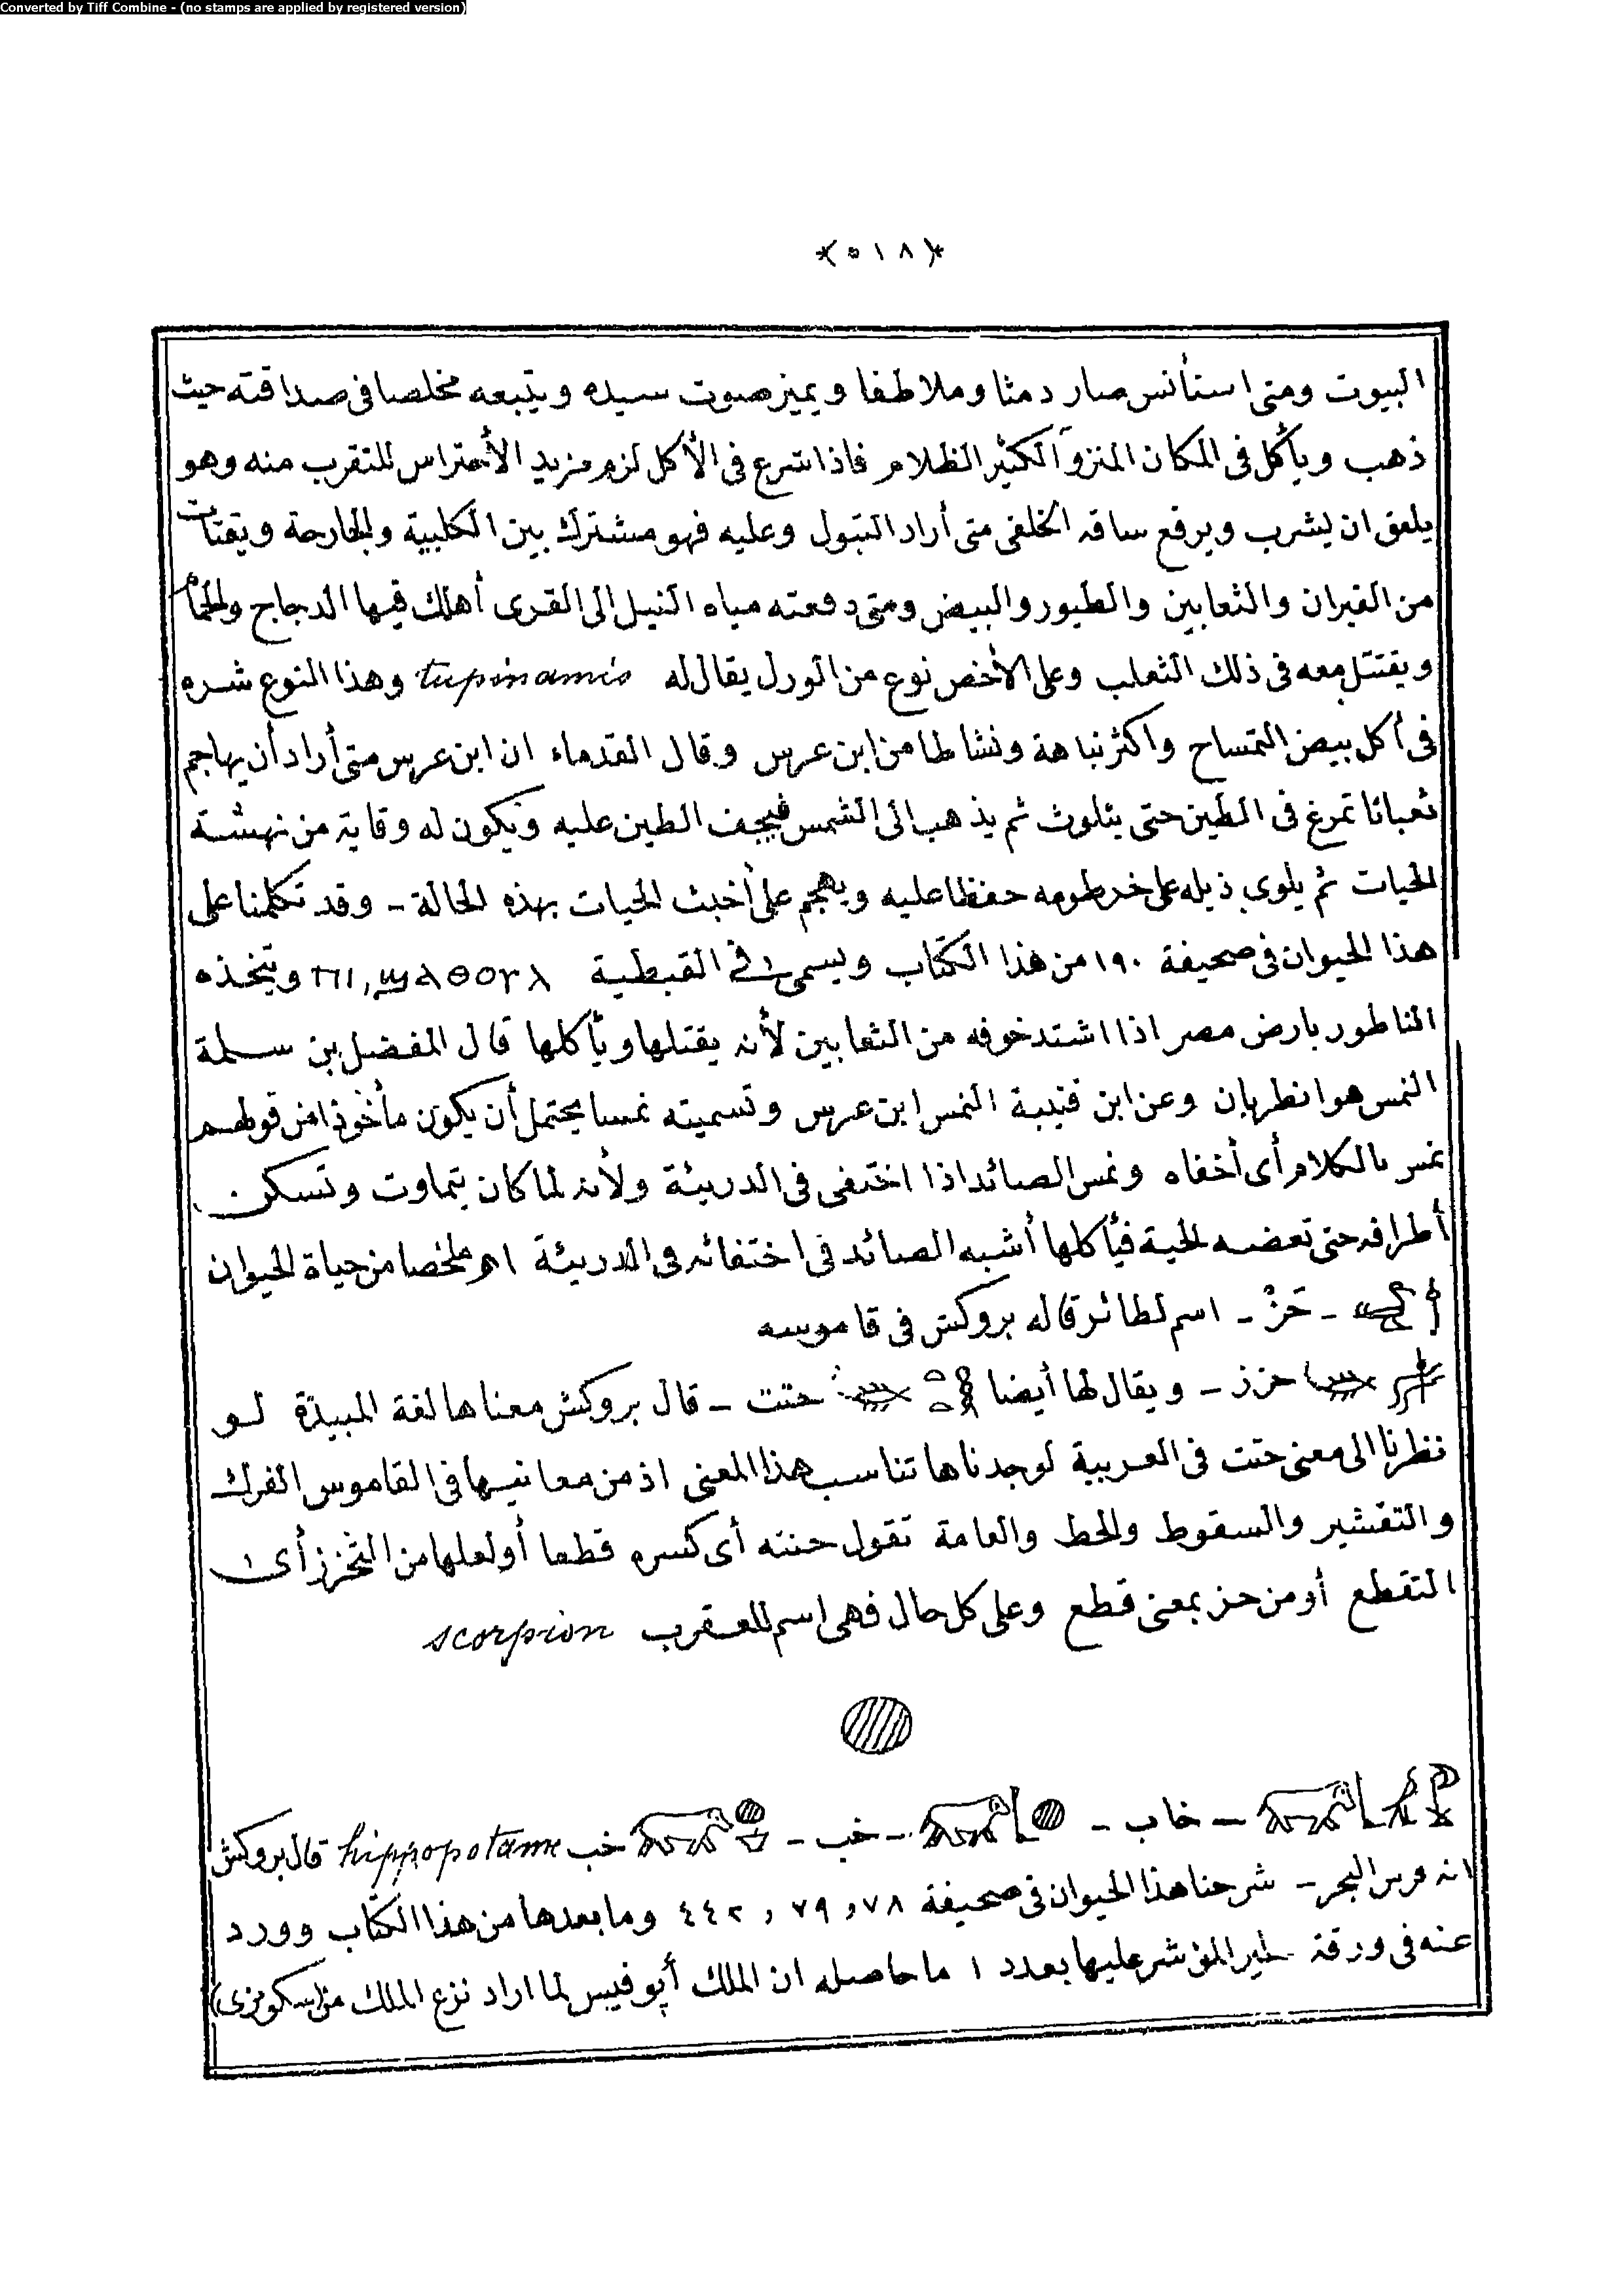 Converted by Tiff Combine - (no stamps are applied by registered version)
﴿٥١٨﴾
البيوت ومتى استأنس صار دمثا وملاطفا ويميز صوت سيده ويتبعه مخلصا فى صداقته حيث
ذهب ويأكل فى المكان المنزو الكثير الظلام فاذا شرع فى الأكل لزم مزيد الأحتراس للتقرب منه وهو
يلعق ان يشرب ويرفع ساقه الخلفى متى أراد التبول وعليه فهو مشترك بين الكلبية والجارحة ويقتات
من الفيران والثعابين والطيور والبيض ومتى دفعته مياه النيل الى القرى أهلك فيها الدجاج والحمام
ويقتتل معه فى ذلك الثعلب وعلى الأخص نوع من الورل يقال له tupinamis وهذا النوع شره
فى أكل بيض التمساح واكثر نباهة ونشاطا من ابن عرس وقال القدماء ان ابن عرس متى أراد أن يهاجم
ثعبانا تمرغ فى الطين حتى يتلوث ثم يذهب الى الشمس فيجف الطين عليه ويكون له وقاية من نهشة
الحيات ثم يلوى ذيله على خرطومه حفظا عليه ويهجم على أخبث الحيات بهذه الحالة - وقد تكلمنا على
هذا الحيوان فى صحيفة ١٩٠ من هذا الكتاب ويسمى فى القبطية ⲡⲓ,ϣⲁⲑⲟⲩⲗ ويتخذه
الناطور بارض مصر اذا اشتد خوفه من الثعابين لأنه يقتلها ويأكلها قال المفضل بن سلمة
النمس هو انظربان وعن ابن قتيبة النمس ابن عرس وتسميته نمسا يحتمل أن يكون مأخوذا من قولهم
نمس بالكلام أى أخفاه ونمس الصائد اذا اختفى فى الدريئة ولأنه لما كان يتماوت وتسكن
أطرافه حتى تعضه الحية فيأكلها أشبه الصائد فى اختفائه فى الدريئة اه ملخصا من حياة الحيوان
- حَزْ - اسم لطائر قاله بروكش فى قاموسه
حزز - ويقال لها أيضا حتت - قال بروكش معناها لغة المبيدة لو
نظرنا الى معنى حتت فى العربية لوجدناها تناسب هذا المعنى اذ من معانيها فى القاموس الفرك
والتقشير والسقوط والحط والعامة تقول حتته أى كسره قطعا أو لعلها من التحزز أى
التقطع أو من حز بمعنى قطع وعلى كل حال فهى اسم للعقرب scorpion
- خاب - - خب - خب hippopotame قال بروكش
انه فرس البحر - شرحنا هذا الحيوان فى صحيفة ٧٨ و ٧٩ و ٤٤٢ وما بعدها من هذا الكتاب وورد
عنه فى ورقة المؤشر عليها بعدد ١ ما حاصله ان الملك أپوفيس لما اراد نزع الملك من